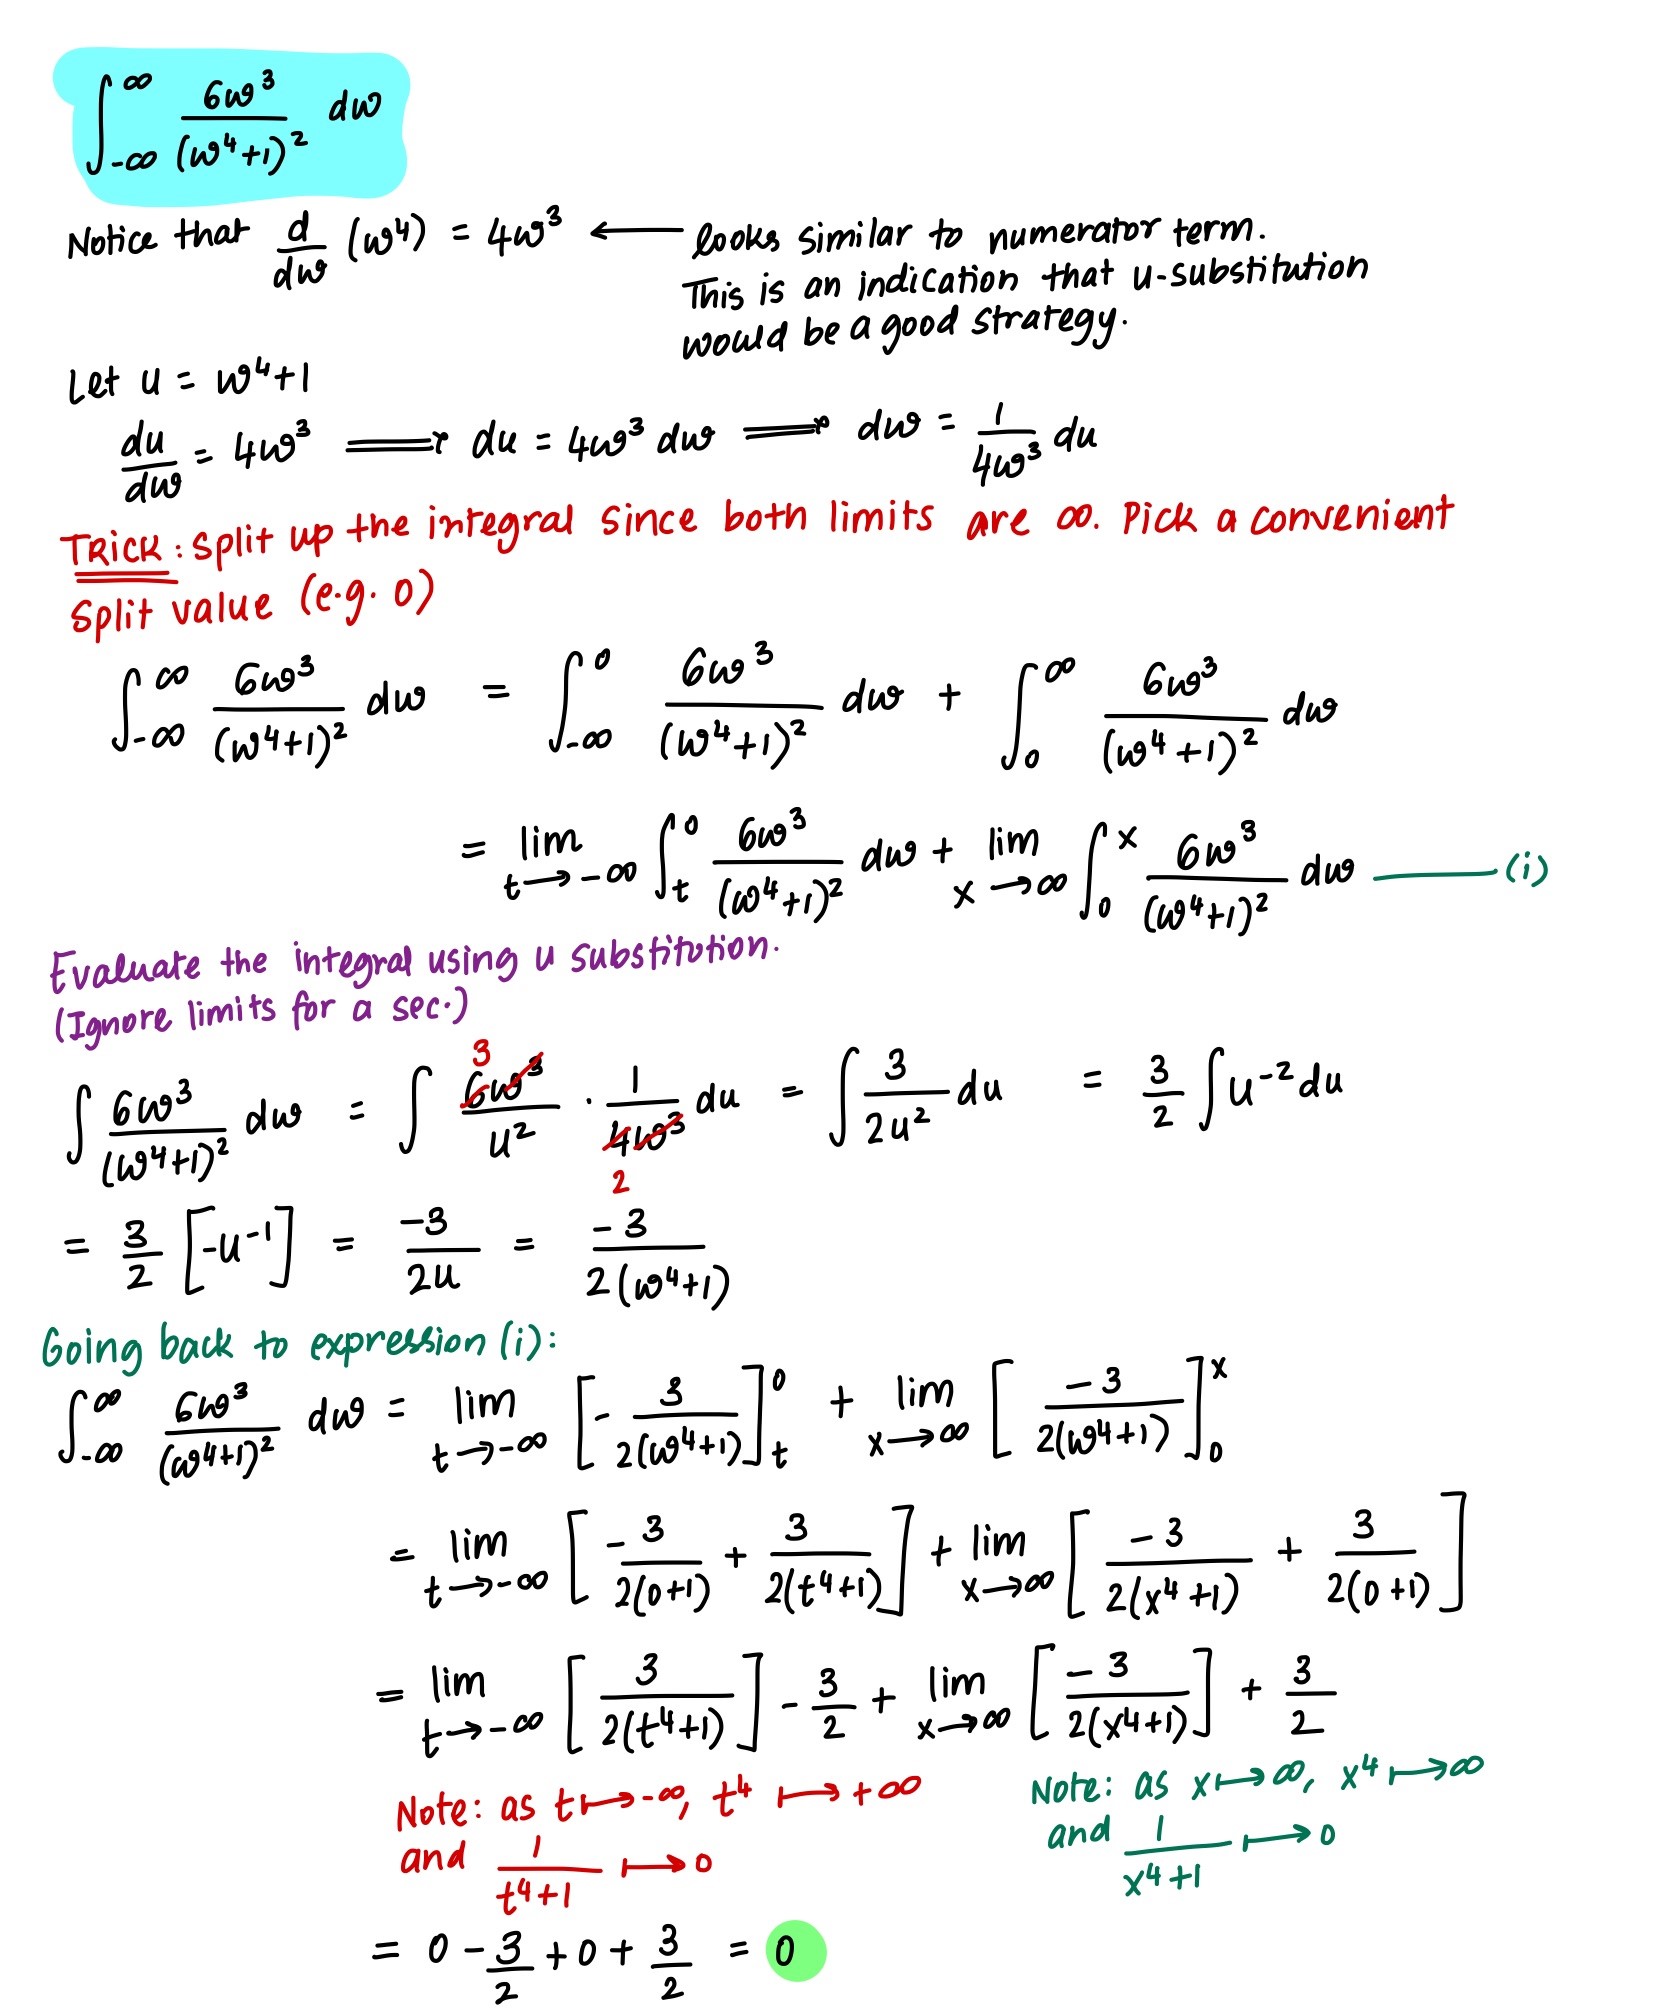 ∫_{-∞}^{∞} 6w³/(w⁴+1)² dw
Notice that d/dw (w⁴) = 4w³ ← looks similar to numerator term.
This is an indication that u-substitution
would be a good strategy.
Let u = w⁴+1
du/dw = 4w³ ⟹ du = 4w³ dw ⟹ dw = 1/4w³ du
TRICK: split up the integral since both limits are ∞. Pick a convenient
split value (e.g. 0)
∫_{-∞}^{∞} 6w³/(w⁴+1)² dw = ∫_{-∞}^{0} 6w³/(w⁴+1)² dw + ∫_{0}^{∞} 6w³/(w⁴+1)² dw
= lim_{t→-∞} ∫_{t}^{0} 6w³/(w⁴+1)² dw + lim_{x→∞} ∫_{0}^{x} 6w³/(w⁴+1)² dw —— (i)
Evaluate the integral using u substitution.
(Ignore limits for a sec.)
∫ 6w³/(w⁴+1)² dw = ∫ 3 6w³/u² · 1/4w³ 2 du = ∫ 3/2u² du = 3/2 ∫ u⁻² du
= 3/2 [-u⁻¹] = -3/2u = -3/2(w⁴+1)
Going back to expression (i):
∫_{-∞}^{∞} 6w³/(w⁴+1)² dw = lim_{t→-∞} [- 3/2(w⁴+1)]_{t}^{0} + lim_{x→∞} [-3/2(w⁴+1)]_{0}^{x}
= lim_{t→-∞} [-3/2(0+1) + 3/2(t⁴+1)] + lim_{x→∞} [-3/2(x⁴+1) + 3/2(0+1)]
= lim_{t→-∞} [3/2(t⁴+1)] - 3/2 + lim_{x→∞} [-3/2(x⁴+1)] + 3/2
Note: as t↦-∞, t⁴ ↦ +∞
and 1/t⁴+1 ↦ 0
Note: as x↦∞, x⁴ ↦ ∞
and 1/x⁴+1 ↦ 0
= 0 - 3/2 + 0 + 3/2 = 0